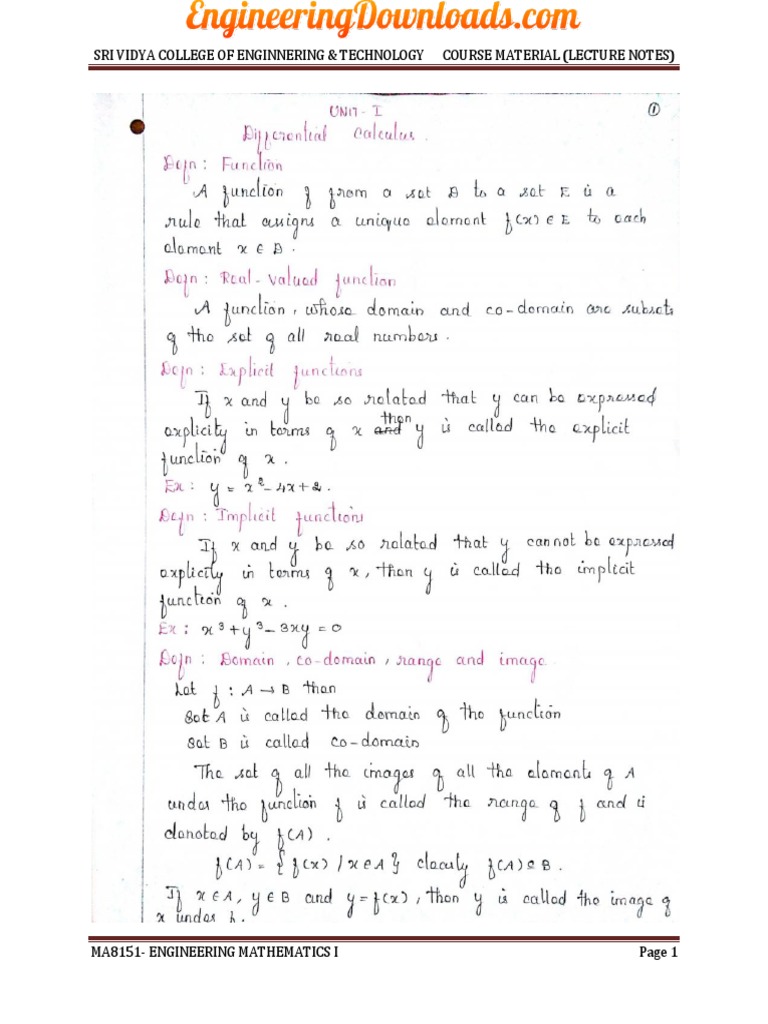 EngineeringDownloads.com
SRI VIDYA COLLEGE OF ENGINNERING & TECHNOLOGY COURSE MATERIAL (LECTURE NOTES)
UNIT - I
①
Differential Calculus.
Defn: Function
A function f from a set D to a set E is a
rule that assigns a unique element f(x) ∈ E to each
element x ∈ D.
Defn: Real-valued function
A function, whose domain and co-domain are subsets
of the set of all real numbers.
Defn: Explicit functions
If x and y be so related that y can be expressed
then
explicity in terms of x and y is called the explicit
function of x.
Ex: y = x² - 4x + 2.
Defn: Implicit functions
If x and y be so related that y cannot be expressed
explicity in terms of x, then y is called the implicit
function of x.
Ex: x³ + y³ - 3xy = 0
Defn: Domain, co-domain, range and image.
Let f : A → B then
Set A is called the domain of the function
Set B is called co-domain
The set of all the images of all the elements of A
under the function f is called the range of f and is
denoted by f(A).
f(A) = { f(x) / x ∈ A } clearly f(A) ⊆ B.
If x ∈ A, y ∈ B and y = f(x), then y is called the image of
x under
MA8151- ENGINEERING MATHEMATICS I Page 1